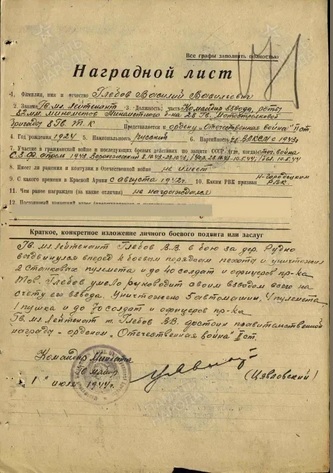 Все графы заполнять полностью
Наградной лист
1. Фамилия, имя и отчество Глебов Василий Васильевич
2. Звание Гв. мл. лейтенант 3. Должность, часть Командир взвода, роты
82мм минометов
бригады 8 Гв. ТК
Представляется к ордену „Отечественная война" II ст.
4. Год рождения 1924 5. Национальность русский 6. Партийность ВЛКСМ с
7. Участие в гражданской войне и последующих боевых действиях по защите СССР
8. Имеет ли ранения и контузии в Отечественной войне не имеет
9. С какого времени в Красной Армии с августа 1942 г. 10. Каким РВК призван
11. Чем ранее награжден (за какие отличия) не награжден
Краткое, конкретное изложение личного боевого подвига или заслуг
Гв. мл. лейтенант Глебов В.В. в бою за дер.
выдвинулся вперед к боевым порядкам пехоты и уничтожил
2 станковых пулемета и до 40 солдат и офицеров пр-ка
Тов. Глебов умело руководит своим взводом всего на
счету его взвода. Уничтожено 5 автомашин, 4 пулемета
1 пушка и до 70 солдат и офицеров пр-ка.
Гв. мл. лейтенант т. Глебов В.В. достоин правительственной
награды - орденом, Отечественная война II ст.
Командир
майор
июля 1944 г. (Цявловский)